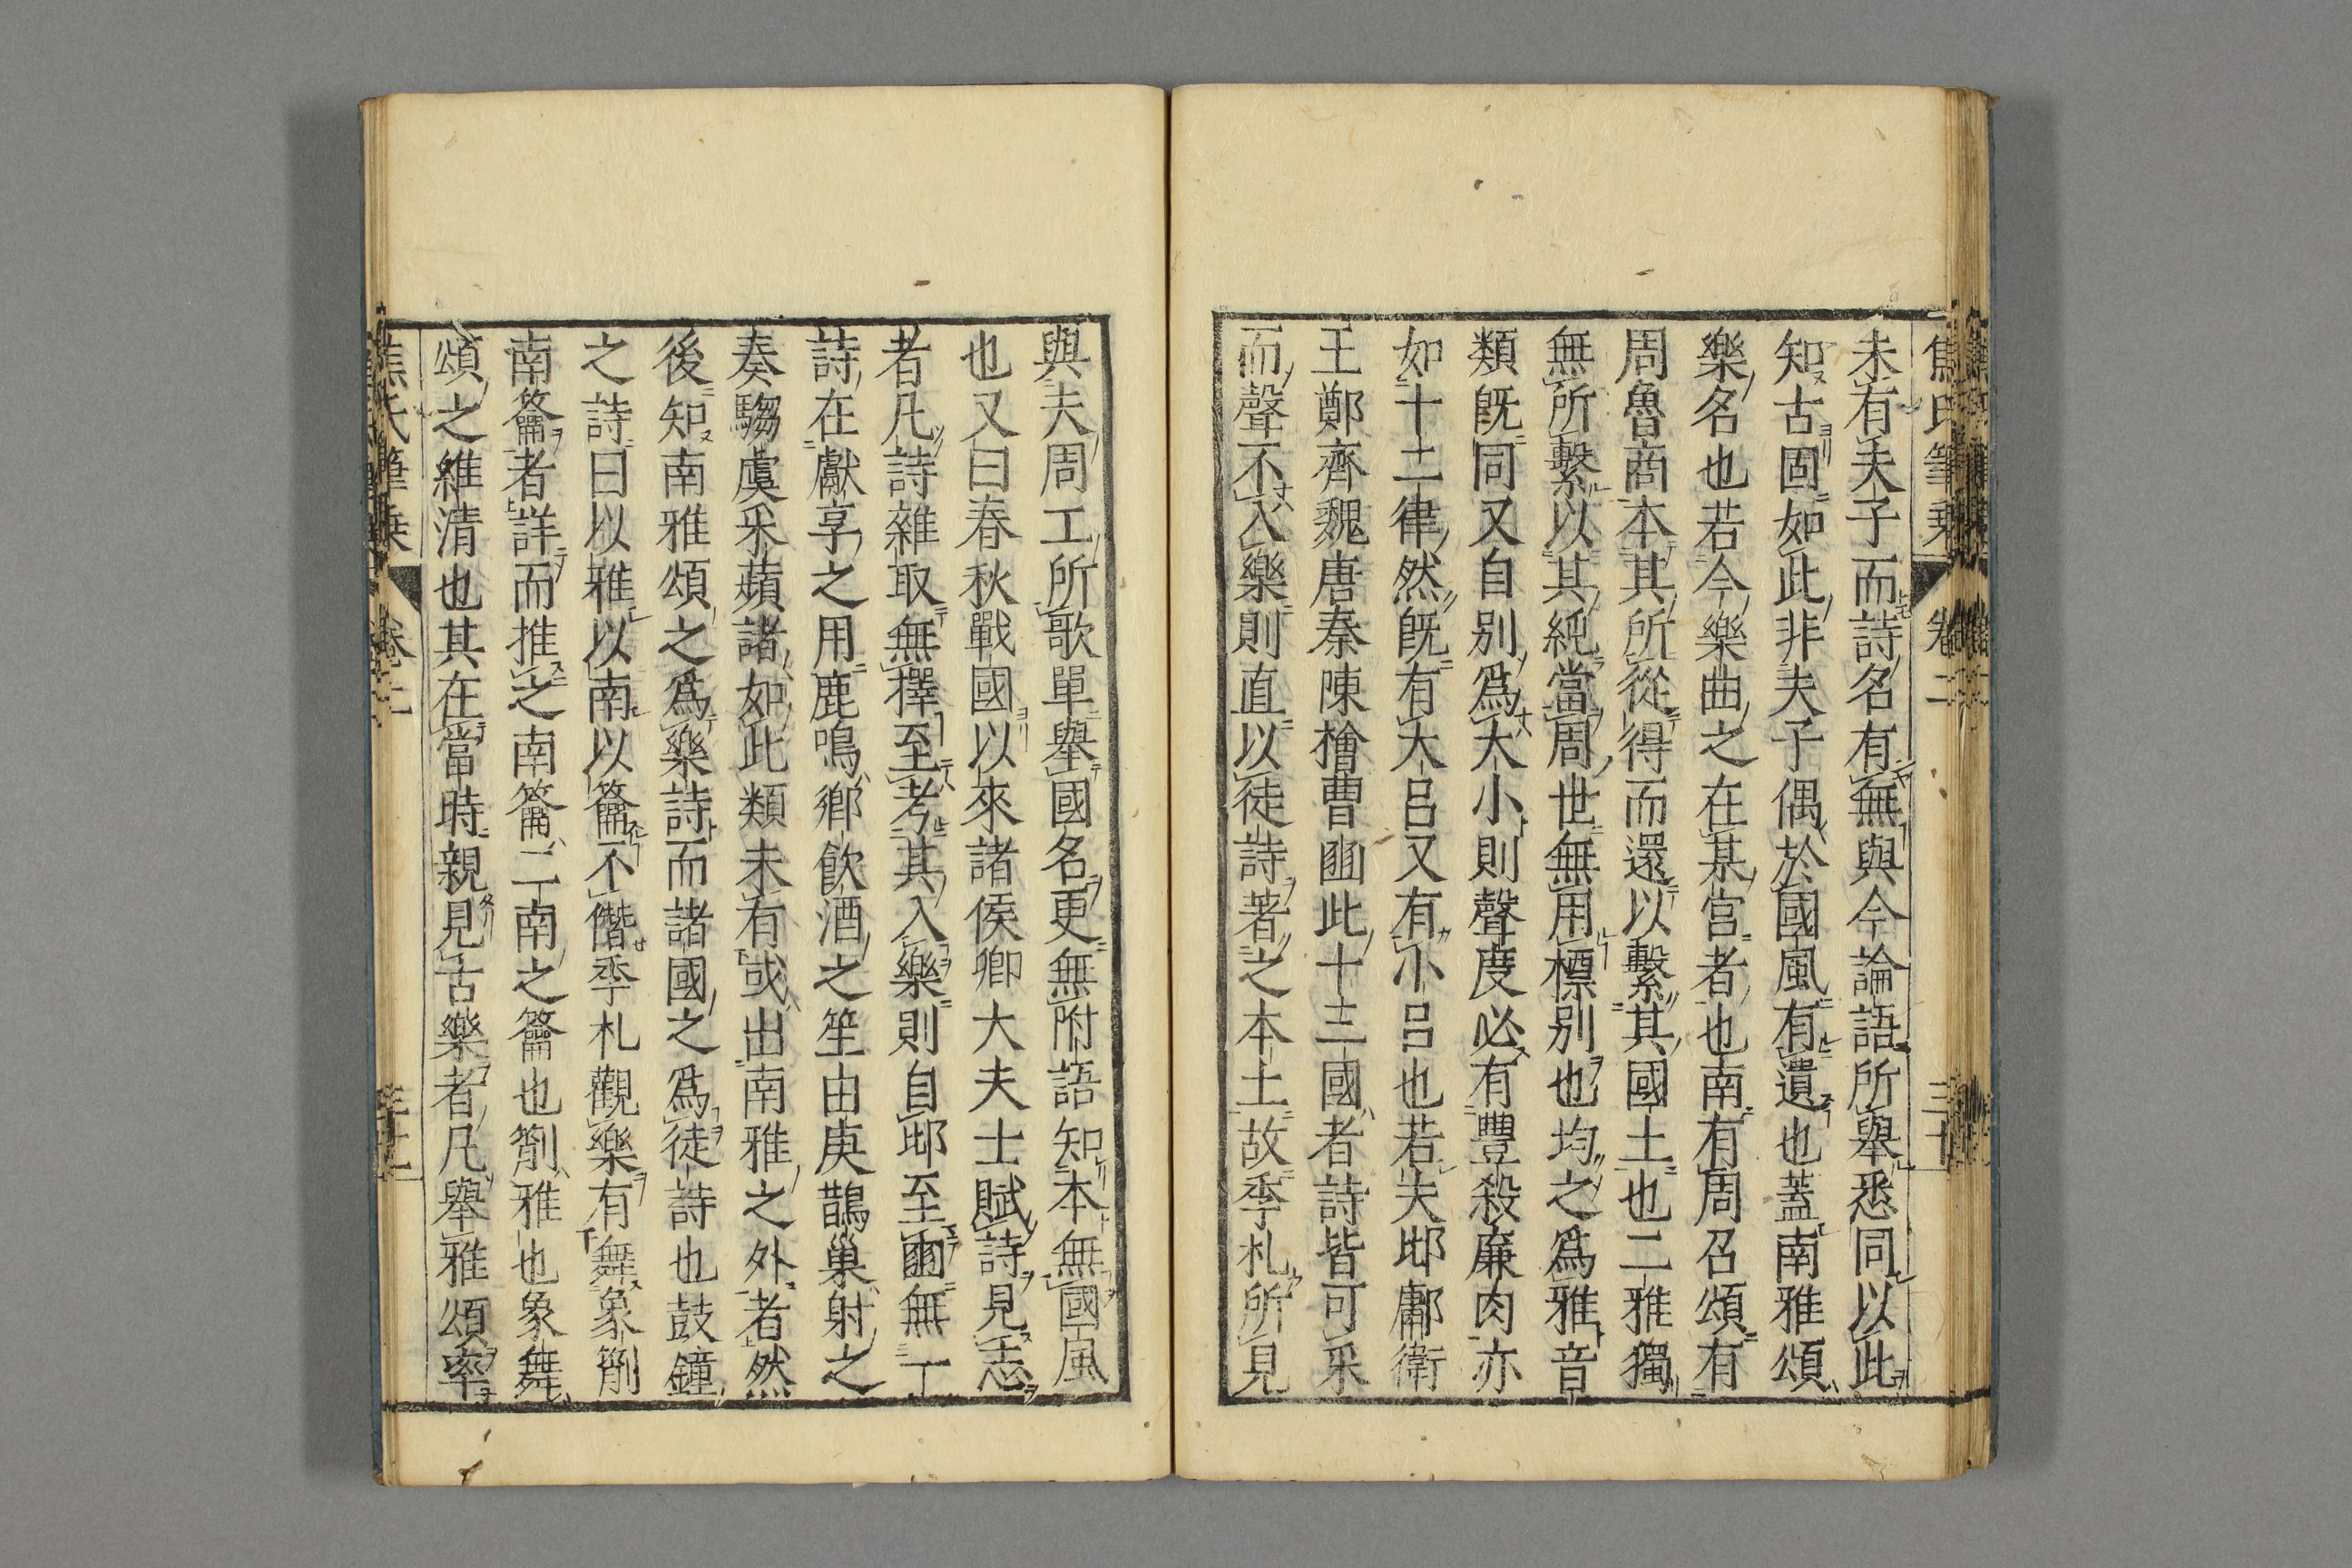 焦氏筆乗 卷二 三十
未有夫子而詩名有無與今論語所舉悉同以此
知古固如此非夫子偶於國風有遺也蓋南雅頌
樂名也若今樂曲之在某宮者也南有周召頌有
周魯商本其所從得而還以繫其國土也二雅獨
無所繫以其純當周世無用標別也均之爲雅音
類既同又自別爲大小則聲度必有豐殺廉肉亦
如十二律然既有大呂又有小呂也若夫邶鄘衛
王鄭齊魏唐秦陳檜曹豳此十三國者詩皆可采
而聲不入樂則直以徒詩著之本土故季札所見
與夫周工所歌單舉國名更無附語知本無國風
也又曰春秋戰國以來諸侯卿大夫士賦詩見志
者凡詩雜取無擇至考其入樂則自邶至豳無一
詩在獻享之用鹿鳴鄉飲酒之笙由庚鵲巢射之
奏騶虞采蘋諸如此類未有或出南雅之外者然
後知南雅頌之爲樂詩而諸國之爲徒詩也鼓鐘
之詩曰以雅以南以籥不僭季札觀樂有舞象箾
南籥者詳而推之南籥二南之籥也箾雅也象舞
頌之維清也其在當時親見古樂者凡舉雅頌率
焦氏筆乗 卷二